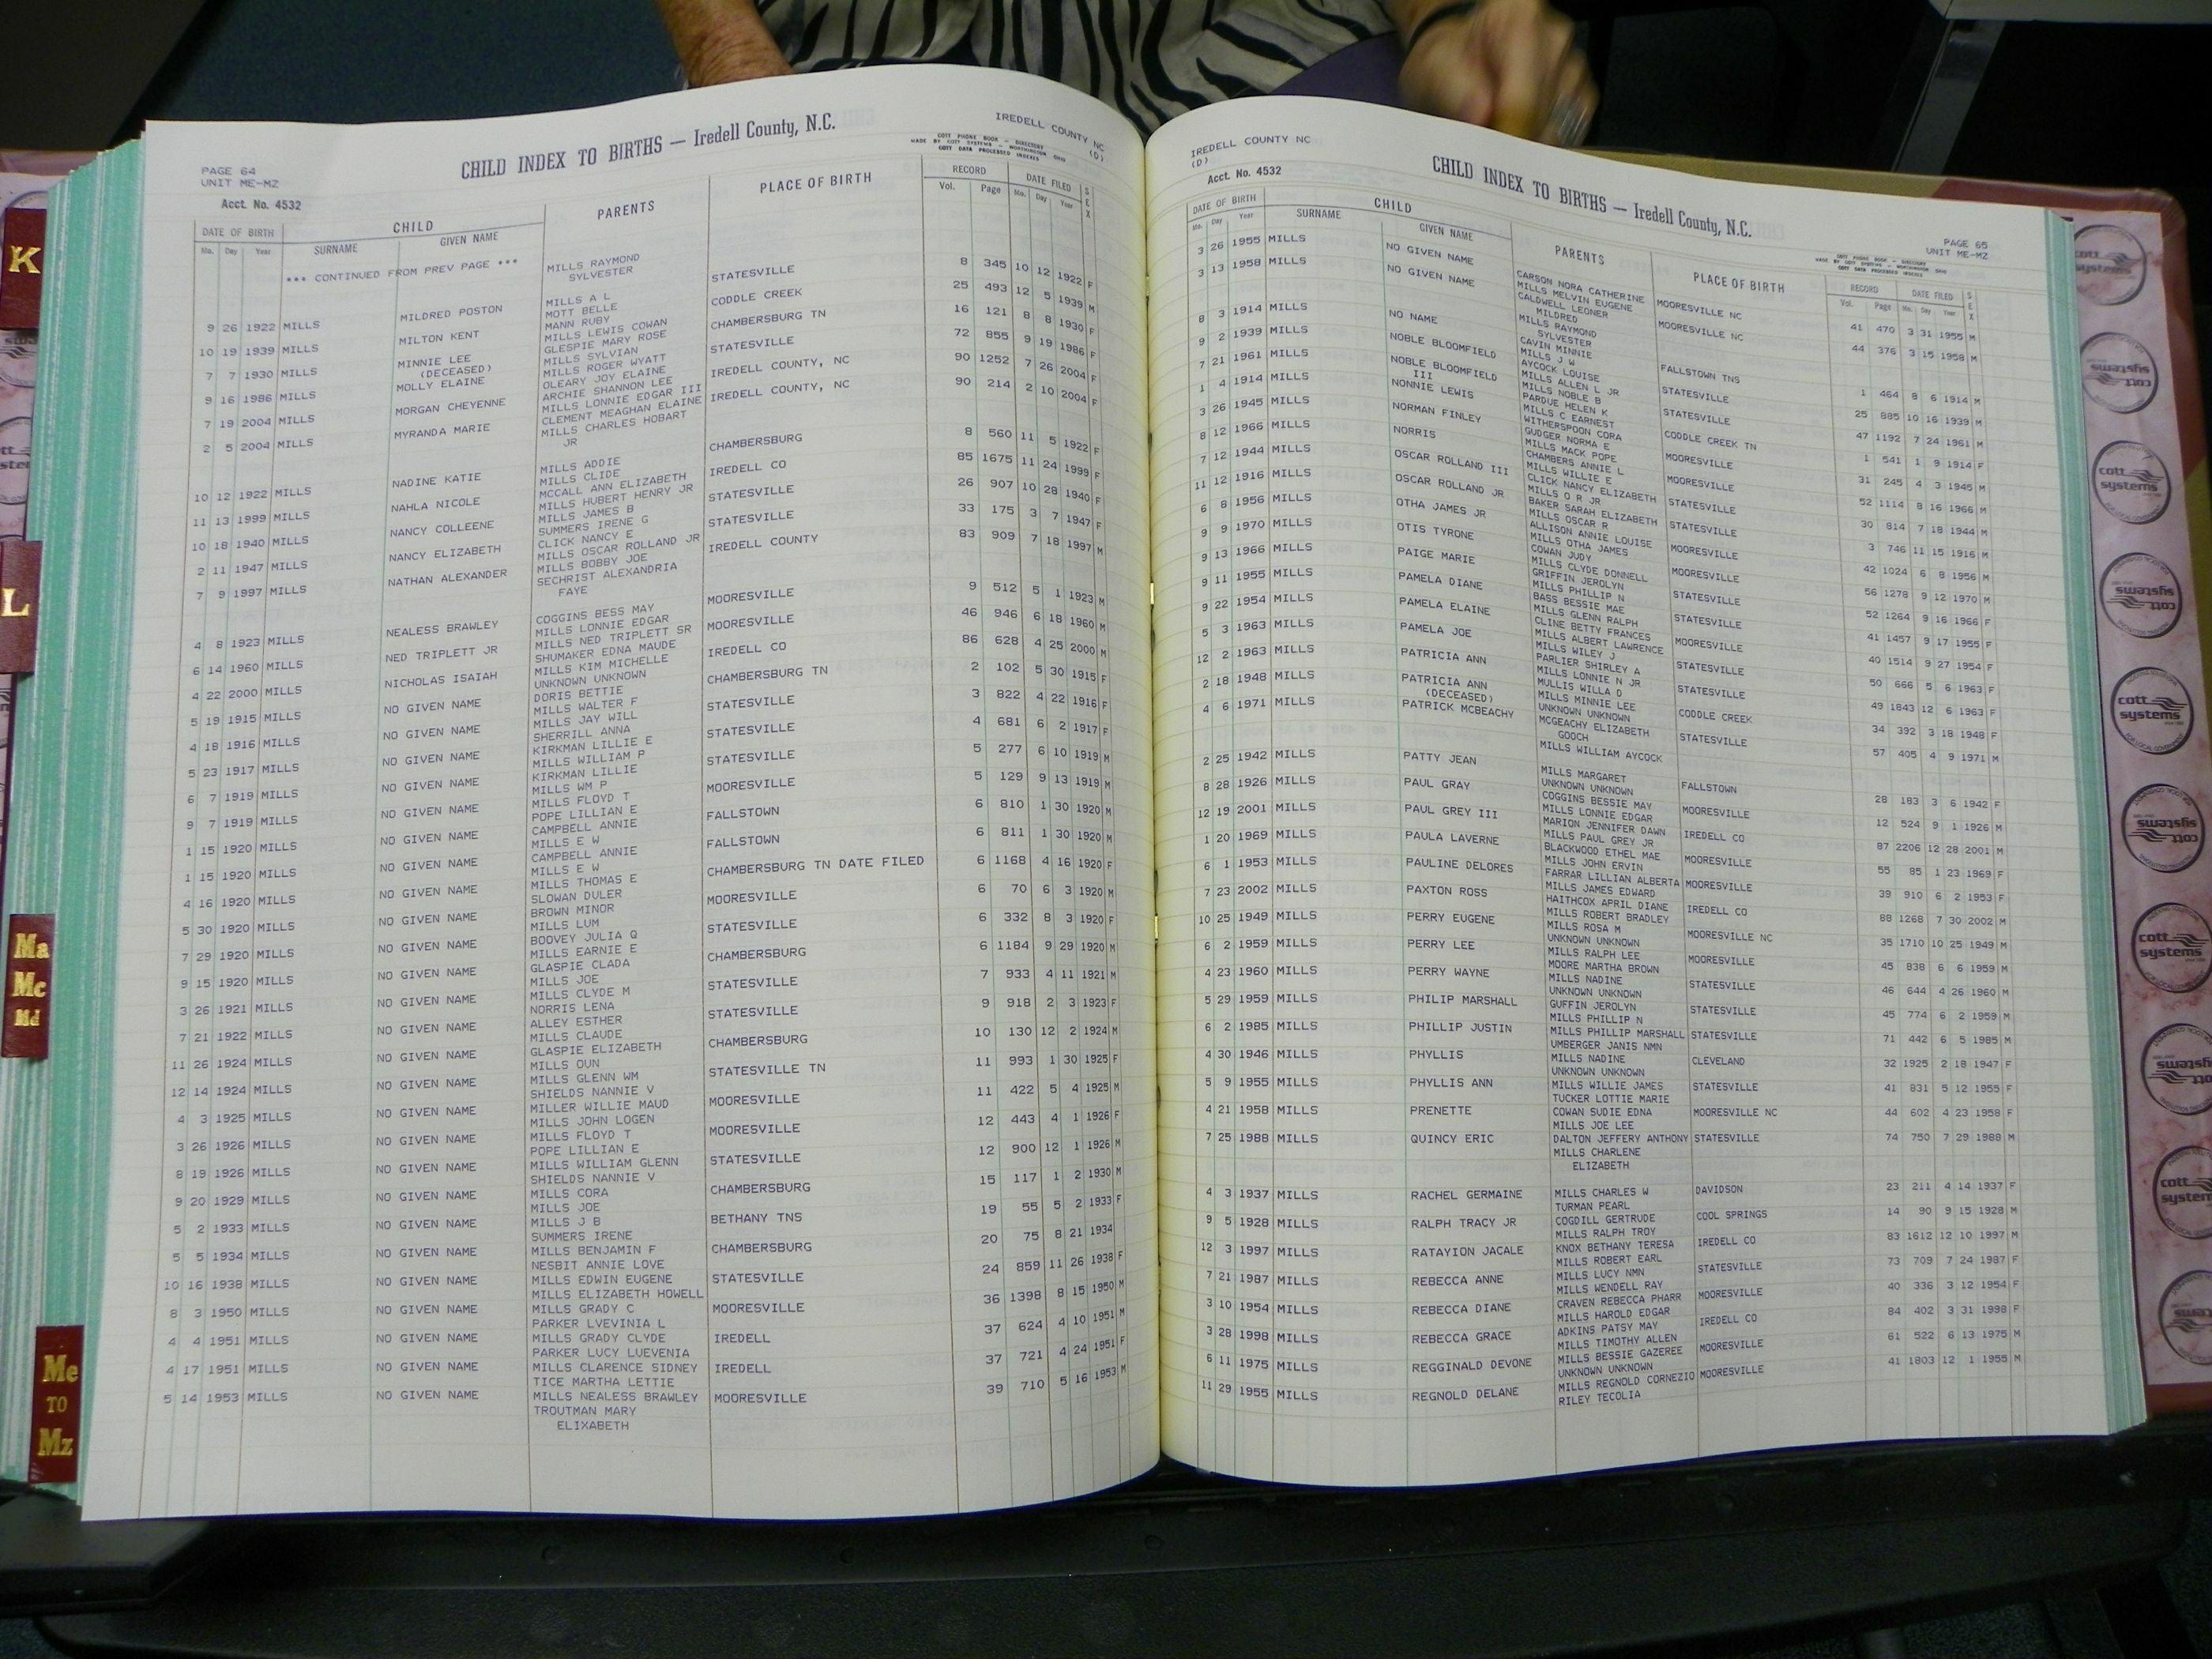 IREDELL COUNTY NC
(D)
CHILD INDEX TO BIRTHS — Iredell County, N.C.
COTT PHONE BOOK - DIRECTORY
MADE BY COTT SYSTEMS - WORTHINGTON OHIO
COTT DATA PROCESSED INDEXES
PAGE 64
UNIT ME-MZ
Acct. No. 4532
DATE OF BIRTH CHILD PARENTS PLACE OF BIRTH RECORD DATE FILED SEX
Mo. Day Year SURNAME GIVEN NAME Vol. Page Mo. Day Year
*** CONTINUED FROM PREV PAGE *** MILLS RAYMOND
SYLVESTER
9 26 1922 MILLS MILDRED POSTON MILLS A L STATESVILLE 8 345 10 12 1922 F
MOTT BELLE
10 19 1939 MILLS MILTON KENT MANN RUBY CODDLE CREEK 25 493 12 5 1939 M
MILLS LEWIS COWAN
7 7 1930 MILLS MINNIE LEE GLESPIE MARY ROSE CHAMBERSBURG TN 16 121 8 8 1930 F
(DECEASED) MILLS SYLVIAN
9 16 1986 MILLS MOLLY ELAINE MILLS ROGER WYATT STATESVILLE 72 855 9 19 1986 F
OLEARY JOY ELAINE
7 19 2004 MILLS MORGAN CHEYENNE ARCHIE SHANNON LEE IREDELL COUNTY, NC 90 1252 7 26 2004 F
MILLS LONNIE EDGAR III
2 5 2004 MILLS MYRANDA MARIE CLEMENT MEAGHAN ELAINE IREDELL COUNTY, NC 90 214 2 10 2004 F
MILLS CHARLES HOBART
JR
10 12 1922 MILLS NADINE KATIE MILLS ADDIE CHAMBERSBURG 8 560 11 5 1922 F
MILLS CLIDE
11 13 1999 MILLS NAHLA NICOLE MCCALL ANN ELIZABETH IREDELL CO 85 1675 11 24 1999 F
MILLS HUBERT HENRY JR
10 18 1940 MILLS NANCY COLLEENE MILLS JAMES B STATESVILLE 26 907 10 28 1940 F
SUMMERS IRENE G
2 11 1947 MILLS NANCY ELIZABETH CLICK NANCY E STATESVILLE 33 175 3 7 1947 F
MILLS OSCAR ROLLAND JR
7 9 1997 MILLS NATHAN ALEXANDER MILLS BOBBY JOE IREDELL COUNTY 83 909 7 18 1997 M
SECHRIST ALEXANDRIA
FAYE
4 8 1923 MILLS NEALESS BRAWLEY COGGINS BESS MAY MOORESVILLE 9 512 5 1 1923 M
MILLS LONNIE EDGAR
6 14 1960 MILLS NED TRIPLETT JR MILLS NED TRIPLETT SR MOORESVILLE 46 946 6 18 1960 M
SHUMAKER EDNA MAUDE
4 22 2000 MILLS NICHOLAS ISAIAH MILLS KIM MICHELLE IREDELL CO 86 628 4 25 2000 M
UNKNOWN UNKNOWN
5 19 1915 MILLS NO GIVEN NAME DORIS BETTIE CHAMBERSBURG TN 2 102 5 30 1915 F
MILLS WALTER F
4 18 1916 MILLS NO GIVEN NAME MILLS JAY WILL STATESVILLE 3 822 4 22 1916 F
SHERRILL ANNA
5 23 1917 MILLS NO GIVEN NAME KIRKMAN LILLIE E STATESVILLE 4 681 6 2 1917 F
MILLS WILLIAM P
6 7 1919 MILLS NO GIVEN NAME KIRKMAN LILLIE STATESVILLE 5 277 6 10 1919 M
MILLS WM P
9 7 1919 MILLS NO GIVEN NAME MILLS FLOYD T MOORESVILLE 5 129 9 13 1919 M
POPE LILLIAN E
1 15 1920 MILLS NO GIVEN NAME CAMPBELL ANNIE FALLSTOWN 6 810 1 30 1920 M
MILLS E W
1 15 1920 MILLS NO GIVEN NAME CAMPBELL ANNIE FALLSTOWN 6 811 1 30 1920 M
MILLS E W
4 16 1920 MILLS NO GIVEN NAME MILLS THOMAS E CHAMBERSBURG TN DATE FILED 6 1168 4 16 1920 F
SLOWAN DULER
5 30 1920 MILLS NO GIVEN NAME BROWN MINOR MOORESVILLE 6 70 6 3 1920 M
MILLS LUM
7 29 1920 MILLS NO GIVEN NAME BOOVEY JULIA Q STATESVILLE 6 332 8 3 1920 F
MILLS EARNIE E
9 15 1920 MILLS NO GIVEN NAME GLASPIE CLADA CHAMBERSBURG 6 1184 9 29 1920 M
MILLS JOE
3 26 1921 MILLS NO GIVEN NAME MILLS CLYDE M STATESVILLE 7 933 4 11 1921 M
NORRIS LENA
7 21 1922 MILLS NO GIVEN NAME ALLEY ESTHER STATESVILLE 9 918 2 3 1923 F
MILLS CLAUDE
11 26 1924 MILLS NO GIVEN NAME GLASPIE ELIZABETH CHAMBERSBURG 10 130 12 2 1924 M
MILLS OUN
12 14 1924 MILLS NO GIVEN NAME MILLS GLENN WM STATESVILLE TN 11 993 1 30 1925 F
SHIELDS NANNIE V
4 3 1925 MILLS NO GIVEN NAME MILLER WILLIE MAUD MOORESVILLE 11 422 5 4 1925 M
MILLS JOHN LOGEN
3 26 1926 MILLS NO GIVEN NAME MILLS FLOYD T MOORESVILLE 12 443 4 1 1926 F
POPE LILLIAN E
8 19 1926 MILLS NO GIVEN NAME MILLS WILLIAM GLENN STATESVILLE 12 900 12 1 1926 M
SHIELDS NANNIE V
9 20 1929 MILLS NO GIVEN NAME MILLS CORA CHAMBERSBURG 15 117 1 2 1930 M
MILLS JOE
5 2 1933 MILLS NO GIVEN NAME MILLS J B BETHANY TNS 19 55 5 2 1933 F
SUMMERS IRENE
5 5 1934 MILLS NO GIVEN NAME MILLS BENJAMIN F CHAMBERSBURG 20 75 8 21 1934
NESBIT ANNIE LOVE
10 16 1938 MILLS NO GIVEN NAME MILLS EDWIN EUGENE STATESVILLE 24 859 11 26 1938 F
MILLS ELIZABETH HOWELL
8 3 1950 MILLS NO GIVEN NAME MILLS GRADY C MOORESVILLE 36 1398 8 15 1950 M
PARKER LVEVINIA L
4 4 1951 MILLS NO GIVEN NAME MILLS GRADY CLYDE IREDELL 37 624 4 10 1951 M
PARKER LUCY LUEVENIA
4 17 1951 MILLS NO GIVEN NAME MILLS CLARENCE SIDNEY IREDELL 37 721 4 24 1951 F
TICE MARTHA LETTIE
5 14 1953 MILLS NO GIVEN NAME MILLS NEALESS BRAWLEY MOORESVILLE 39 710 5 16 1953 M
TROUTMAN MARY
ELIXABETH
IREDELL COUNTY NC
(D)
Acct. No. 4532
CHILD INDEX TO BIRTHS — Iredell County, N.C.
COTT PHONE BOOK - DIRECTORY
MADE BY COTT SYSTEMS - WORTHINGTON OHIO
COTT DATA PROCESSED INDEXES
PAGE 65
UNIT ME-MZ
DATE OF BIRTH CHILD PARENTS PLACE OF BIRTH RECORD DATE FILED SEX
Mo. Day Year SURNAME GIVEN NAME Vol. Page Mo. Day Year
3 26 1955 MILLS NO GIVEN NAME CARSON NORA CATHERINE MOORESVILLE NC 41 470 3 31 1955 M
MILLS MELVIN EUGENE
3 13 1958 MILLS NO GIVEN NAME CALDWELL LEONER MOORESVILLE NC 44 376 3 15 1958 M
MILDRED
MILLS RAYMOND
SYLVESTER
8 3 1914 MILLS NO NAME CAVIN MINNIE FALLSTOWN TNS 1 464 8 6 1914 M
MILLS J W
9 2 1939 MILLS NOBLE BLOOMFIELD AYCOCK LOUISE STATESVILLE 25 885 10 16 1939 M
MILLS ALLEN L JR
7 21 1961 MILLS NOBLE BLOOMFIELD MILLS NOBLE B STATESVILLE 47 1192 7 24 1961 M
III PARDUE HELEN K
1 4 1914 MILLS NONNIE LEWIS MILLS C EARNEST CODDLE CREEK TN 1 541 1 9 1914 F
WITHERSPOON CORA
3 26 1945 MILLS NORMAN FINLEY GUDGER NORMA E MOORESVILLE 31 245 4 3 1945 M
MILLS MACK POPE
8 12 1966 MILLS NORRIS CHAMBERS ANNIE L MOORESVILLE 52 1114 8 16 1966 M
MILLS WILLIE E
7 12 1944 MILLS OSCAR ROLLAND III CLICK NANCY ELIZABETH STATESVILLE 30 814 7 18 1944 M
MILLS O R JR
11 12 1916 MILLS OSCAR ROLLAND JR BAKER SARAH ELIZABETH STATESVILLE 3 746 11 15 1916 M
MILLS OSCAR R
6 8 1956 MILLS OTHA JAMES JR ALLISON ANNIE LOUISE MOORESVILLE 42 1024 6 8 1956 M
MILLS OTHA JAMES
9 9 1970 MILLS OTIS TYRONE COWAN JUDY MOORESVILLE 56 1278 9 12 1970 M
MILLS CLYDE DONNELL
9 13 1966 MILLS PAIGE MARIE GRIFFIN JEROLYN STATESVILLE 52 1264 9 16 1966 F
MILLS PHILLIP N
9 11 1955 MILLS PAMELA DIANE BASS BESSIE MAE STATESVILLE 41 1457 9 17 1955 F
MILLS GLENN RALPH
9 22 1954 MILLS PAMELA ELAINE CLINE BETTY FRANCES MOORESVILLE 40 1514 9 27 1954 F
MILLS ALBERT LAWRENCE
5 3 1963 MILLS PAMELA JOE MILLS WILEY J STATESVILLE 50 666 5 6 1963 F
PARLIER SHIRLEY A
12 2 1963 MILLS PATRICIA ANN MILLS LONNIE N JR STATESVILLE 49 1843 12 6 1963 F
MULLIS WILLA D
2 18 1948 MILLS PATRICIA ANN MILLS MINNIE LEE CODDLE CREEK 34 392 3 18 1948 F
(DECEASED) UNKNOWN UNKNOWN
4 6 1971 MILLS PATRICK MCBEACHY MCGEACHY ELIZABETH STATESVILLE 57 405 4 9 1971 M
GOOCH
MILLS WILLIAM AYCOCK
2 25 1942 MILLS PATTY JEAN MILLS MARGARET FALLSTOWN 28 183 3 6 1942 F
UNKNOWN UNKNOWN
8 28 1926 MILLS PAUL GRAY COGGINS BESSIE MAY MOORESVILLE 12 524 9 1 1926 M
MILLS LONNIE EDGAR
12 19 2001 MILLS PAUL GREY III MARION JENNIFER DAWN IREDELL CO 87 2206 12 28 2001 M
MILLS PAUL GREY JR
1 20 1969 MILLS PAULA LAVERNE BLACKWOOD ETHEL MAE MOORESVILLE 55 85 1 23 1969 F
MILLS JOHN ERVIN
6 1 1953 MILLS PAULINE DELORES FARRAR LILLIAN ALBERTA MOORESVILLE 39 910 6 2 1953 F
MILLS JAMES EDWARD
7 23 2002 MILLS PAXTON ROSS HAITHCOX APRIL DIANE IREDELL CO 88 1268 7 30 2002 M
MILLS ROBERT BRADLEY
10 25 1949 MILLS PERRY EUGENE MILLS ROSA M MOORESVILLE NC 35 1710 10 25 1949 M
UNKNOWN UNKNOWN
6 2 1959 MILLS PERRY LEE MILLS RALPH LEE MOORESVILLE 45 838 6 6 1959 M
MOORE MARTHA BROWN
4 23 1960 MILLS PERRY WAYNE MILLS NADINE STATESVILLE 46 644 4 26 1960 M
UNKNOWN UNKNOWN
5 29 1959 MILLS PHILIP MARSHALL GUFFIN JEROLYN STATESVILLE 45 774 6 2 1959 M
MILLS PHILLIP N
6 2 1985 MILLS PHILLIP JUSTIN MILLS PHILLIP MARSHALL STATESVILLE 71 442 6 5 1985 M
UMBERGER JANIS NMN
4 30 1946 MILLS PHYLLIS MILLS NADINE CLEVELAND 32 1925 2 18 1947 F
UNKNOWN UNKNOWN
5 9 1955 MILLS PHYLLIS ANN MILLS WILLIE JAMES STATESVILLE 41 831 5 12 1955 F
TUCKER LOTTIE MARIE
4 21 1958 MILLS PRENETTE COWAN SUDIE EDNA MOORESVILLE NC 44 602 4 23 1958 F
MILLS JOE LEE
7 25 1988 MILLS QUINCY ERIC DALTON JEFFERY ANTHONY STATESVILLE 74 750 7 29 1988 M
MILLS CHARLENE
ELIZABETH
4 3 1937 MILLS RACHEL GERMAINE MILLS CHARLES W DAVIDSON 23 211 4 14 1937 F
TURMAN PEARL
9 5 1928 MILLS RALPH TRACY JR COGDILL GERTRUDE COOL SPRINGS 14 90 9 15 1928 M
MILLS RALPH TROY
12 3 1997 MILLS RATAYION JACALE KNOX BETHANY TERESA IREDELL CO 83 1612 12 10 1997 M
MILLS ROBERT EARL
7 21 1987 MILLS REBECCA ANNE MILLS LUCY NMN STATESVILLE 73 709 7 24 1987 F
MILLS WENDELL RAY
3 10 1954 MILLS REBECCA DIANE CRAVEN REBECCA PHARR MOORESVILLE 40 336 3 12 1954 F
MILLS HAROLD EDGAR
3 28 1998 MILLS REBECCA GRACE ADKINS PATSY MAY IREDELL CO 84 402 3 31 1998 F
MILLS TIMOTHY ALLEN
6 11 1975 MILLS REGGINALD DEVONE MILLS BESSIE GAZEREE MOORESVILLE 61 522 6 13 1975 M
UNKNOWN UNKNOWN
11 29 1955 MILLS REGNOLD DELANE MILLS REGNOLD CORNEZIO MOORESVILLE 41 1803 12 1 1955 M
RILEY TECOLIA
K
L
Ma
Mc
Md
Me
TO
Mz
cott
systems
cott
systems
cott
systems
cott
systems